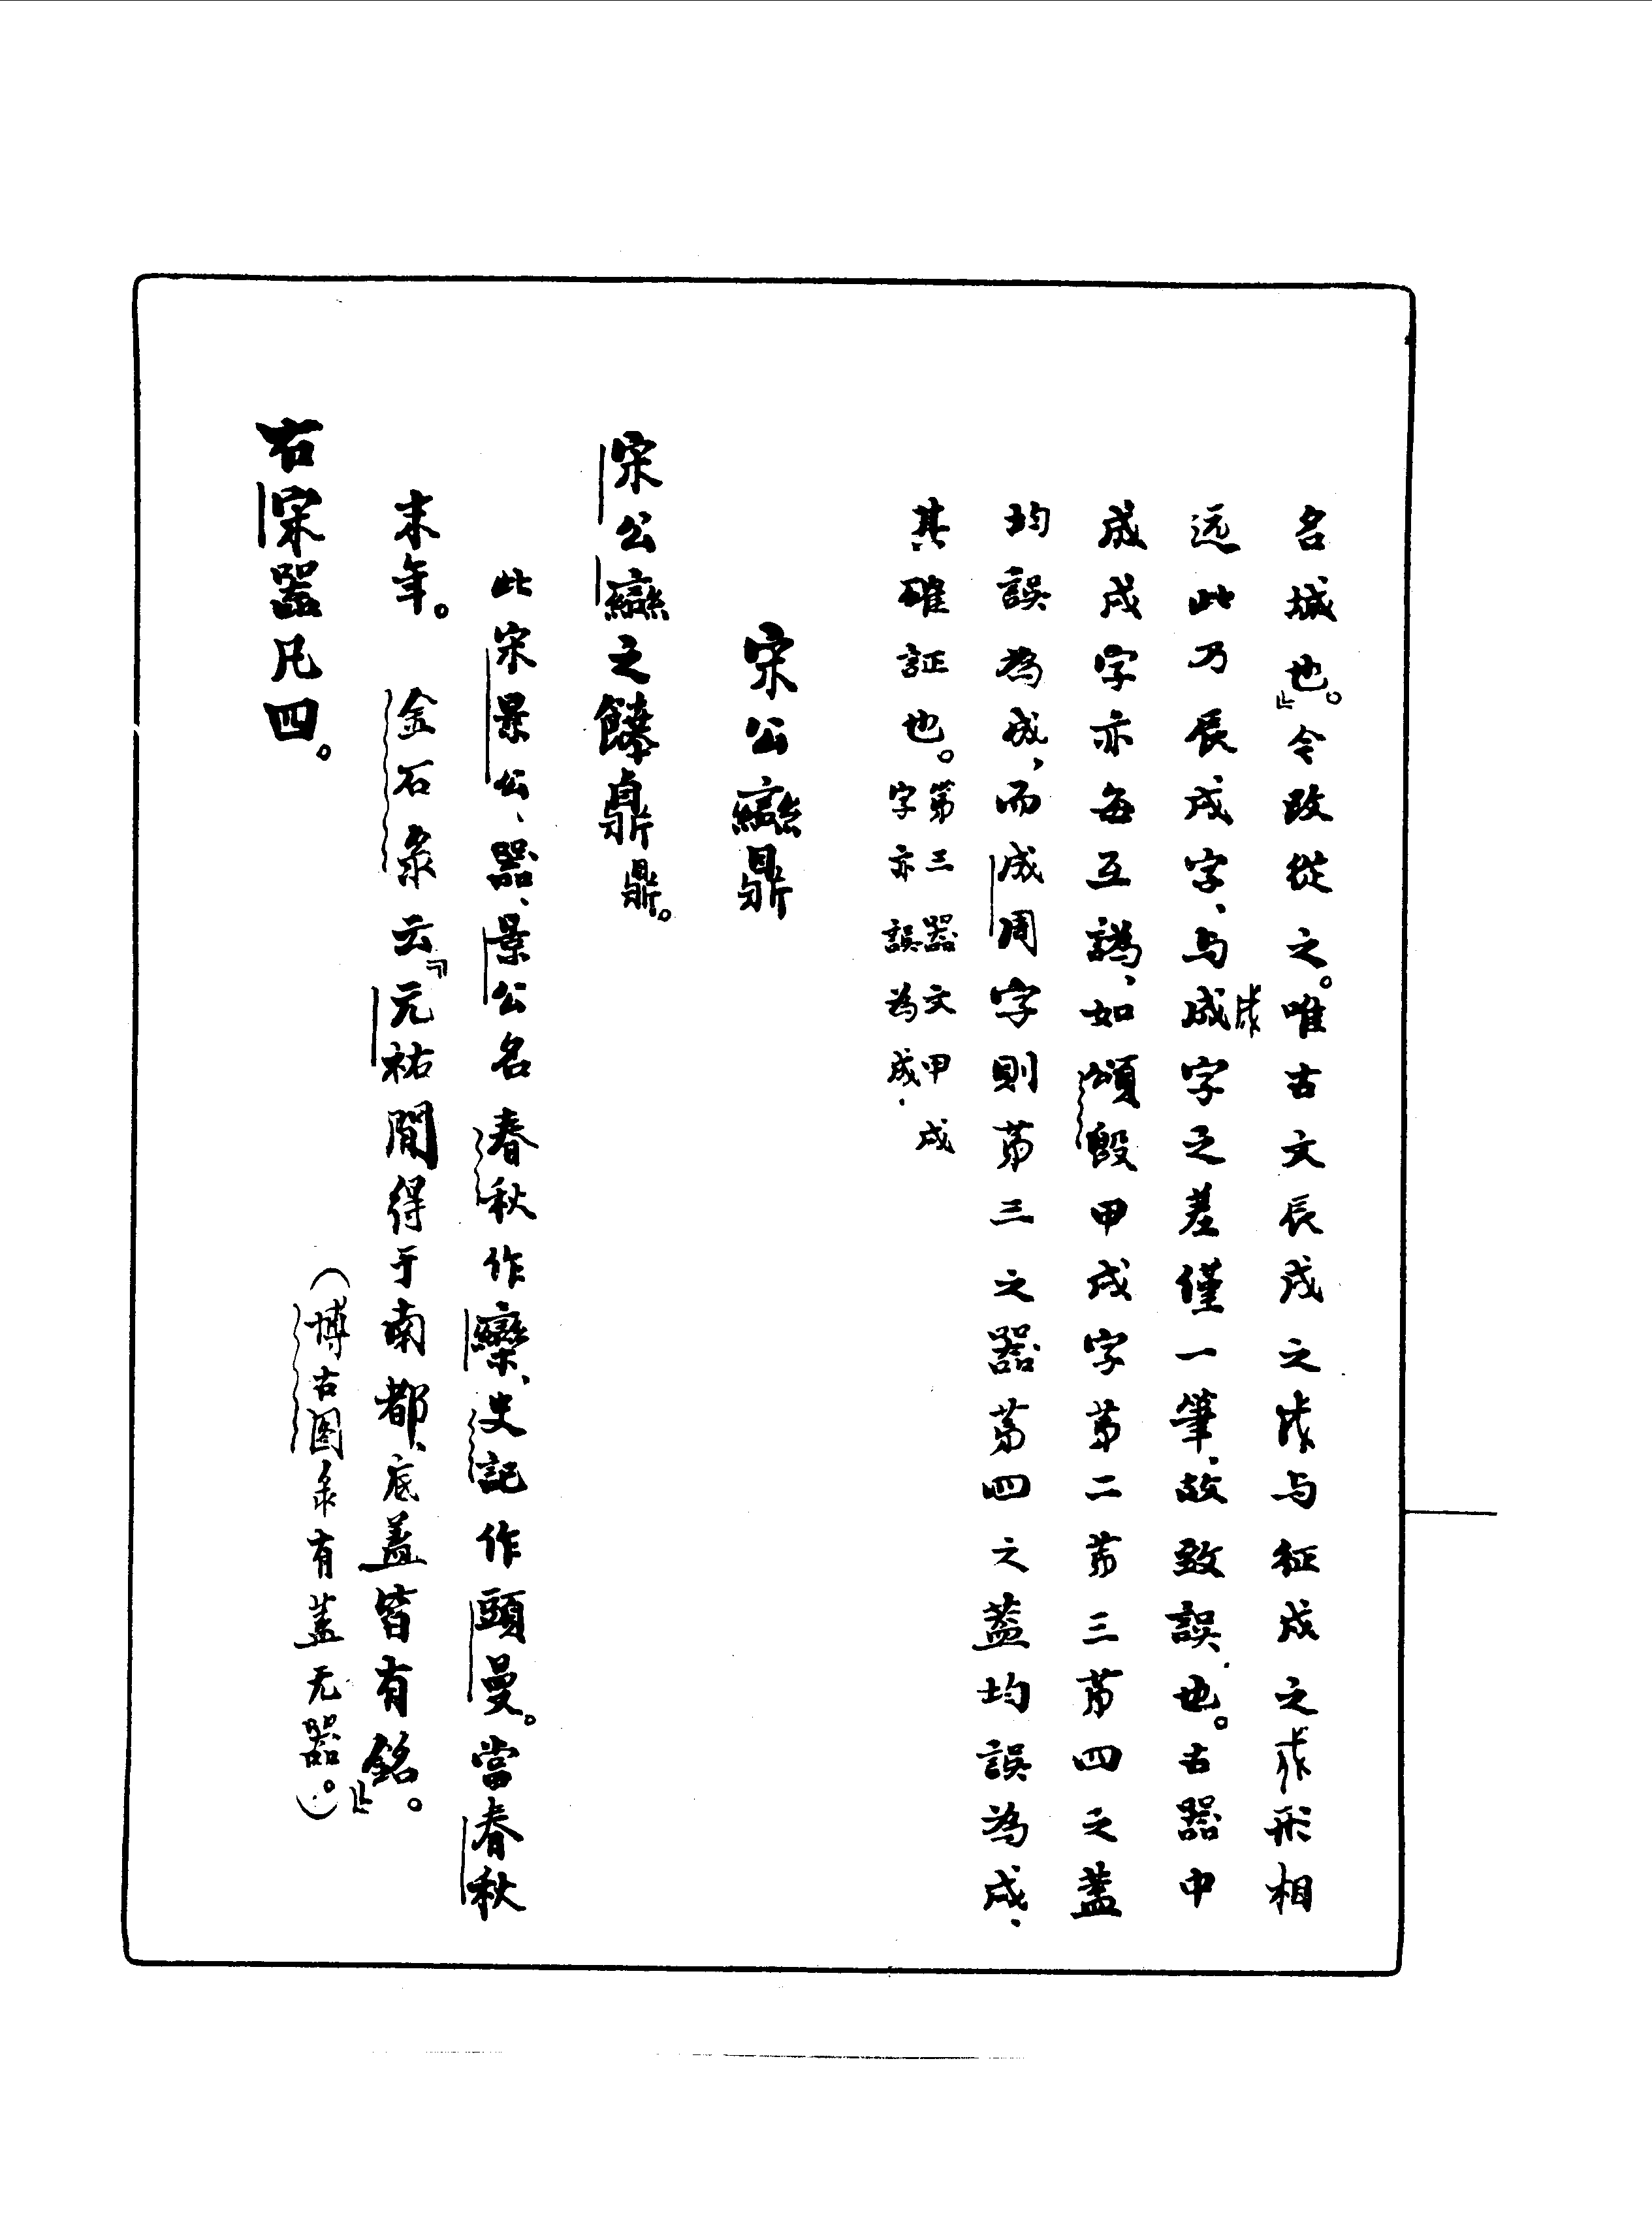 名城也』。今改從之。唯古文辰戌之戌与征戍之戍形相
远此乃辰戌字、与成字之差僅一筆、故致誤也。古器中
成戌字亦每互譌、如頌殷甲戌字第二第三第四之蓋
均誤為成、而成周字則第三之器第四之蓋均誤為戌、
其確証也。第三器文甲戌
字亦誤為成.
宋公䜌鼎
宋公䜌之饙鼎鼎。
此宋景公、器、景公名春秋作欒、史記作頭曼。當春秋
末年。金石彔云『元祐間得于南都、底蓋皆有銘』。
（博古图彔有蓋无器。）
右宋器凡四。